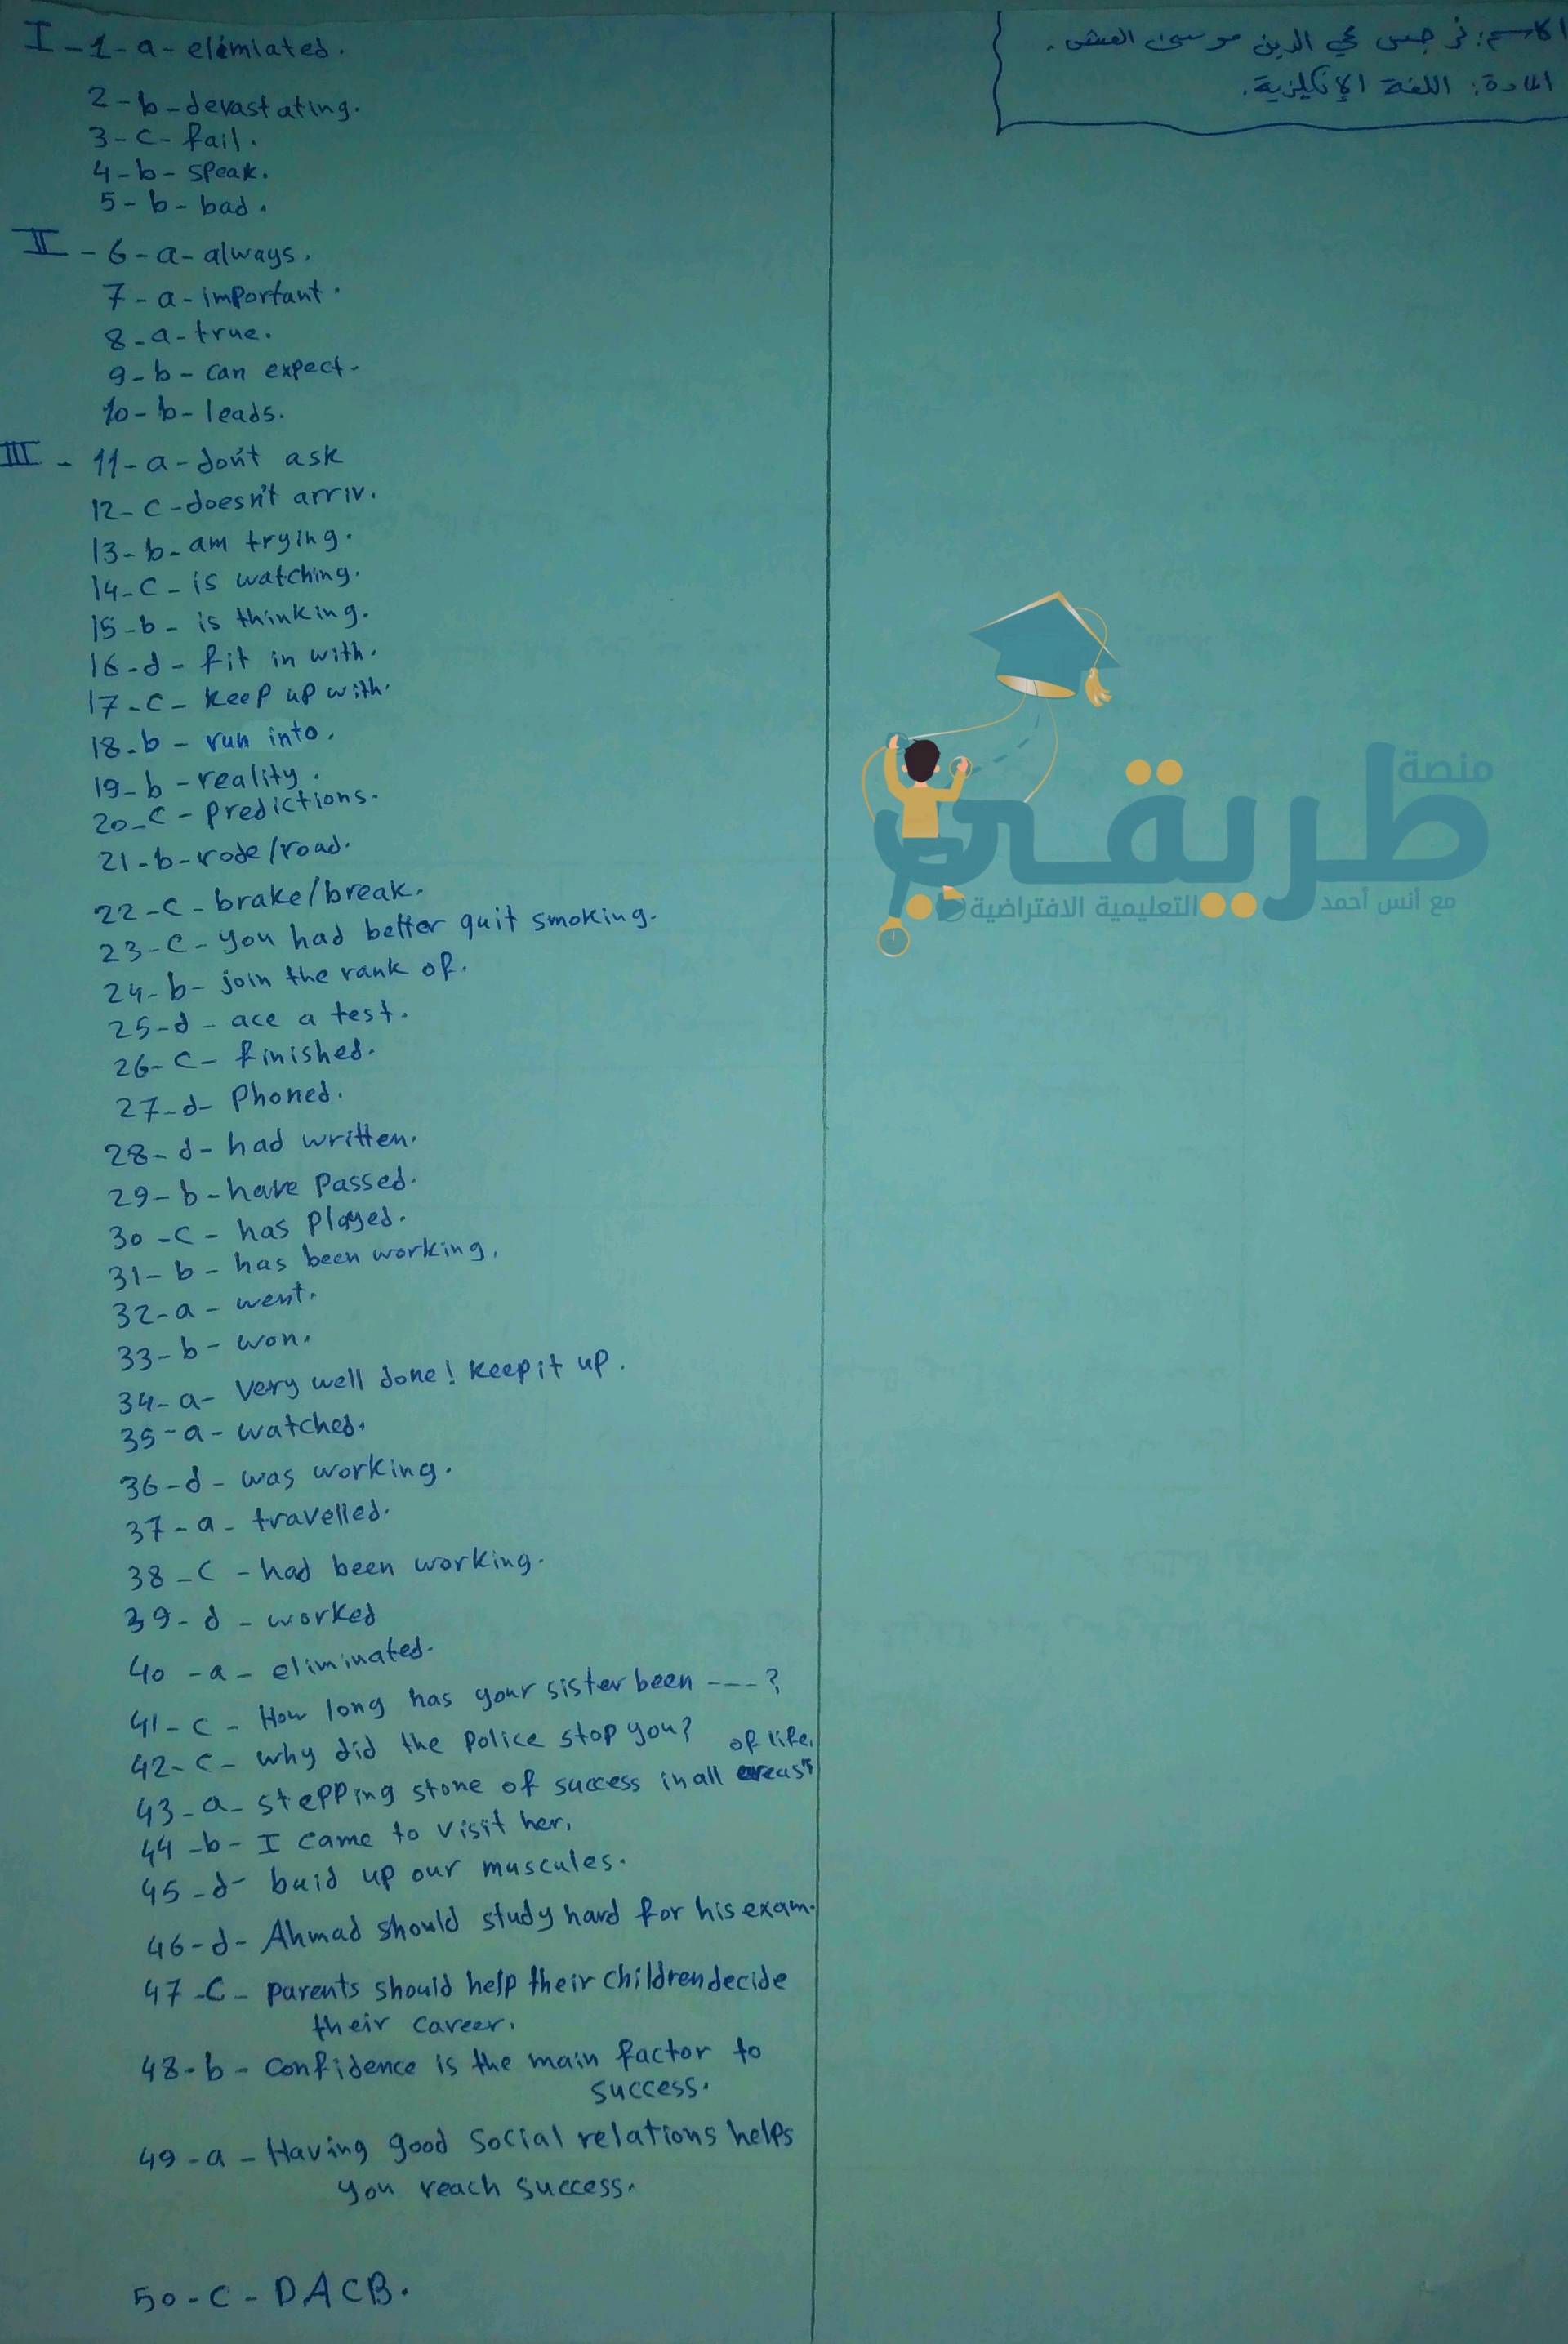 الاسم: نرجس محي الدين موسى العش.
المادة: اللغة الإنكليزية.
I - 1 - a - elemiated.
2 - b - devastating.
3 - c - fail.
4 - b - speak.
5 - b - bad.
II - 6 - a - always.
7 - a - important.
8 - a - true.
9 - b - can expect.
10 - b - leads.
III - 11 - a - don't ask
12 - c - doesn't arriv.
13 - b - am trying.
14 - c - is watching.
15 - b - is thinking.
16 - d - fit in with.
17 - c - keep up with.
18 - b - run into.
19 - b - reality.
20 - c - predictions.
21 - b - rode/road.
22 - c - brake/break.
23 - c - you had better quit smoking.
24 - b - join the rank of.
25 - d - ace a test.
26 - c - finished.
27 - d - Phoned.
28 - d - had written.
29 - b - have passed.
30 - c - has played.
31 - b - has been working.
32 - a - went.
33 - b - won.
34 - a - Very well done! keep it up.
35 - a - watched.
36 - d - was working.
37 - a - travelled.
38 - c - had been working.
39 - d - worked
40 - a - eliminated.
41 - c - How long has your sister been ---?
42 - c - why did the police stop you?
43 - a - stepping stone of success in all areas of life.
44 - b - I came to visit her.
45 - d - buid up our muscules.
46 - d - Ahmad should study hard for his exam.
47 - C - parents should help their children decide
their career.
48 - b - Confidence is the main factor to
success.
49 - a - Having good social relations helps
you reach success.
50 - c - DACB.
منصة
طريقي
مع أنس أحمد
التعليمية الافتراضية